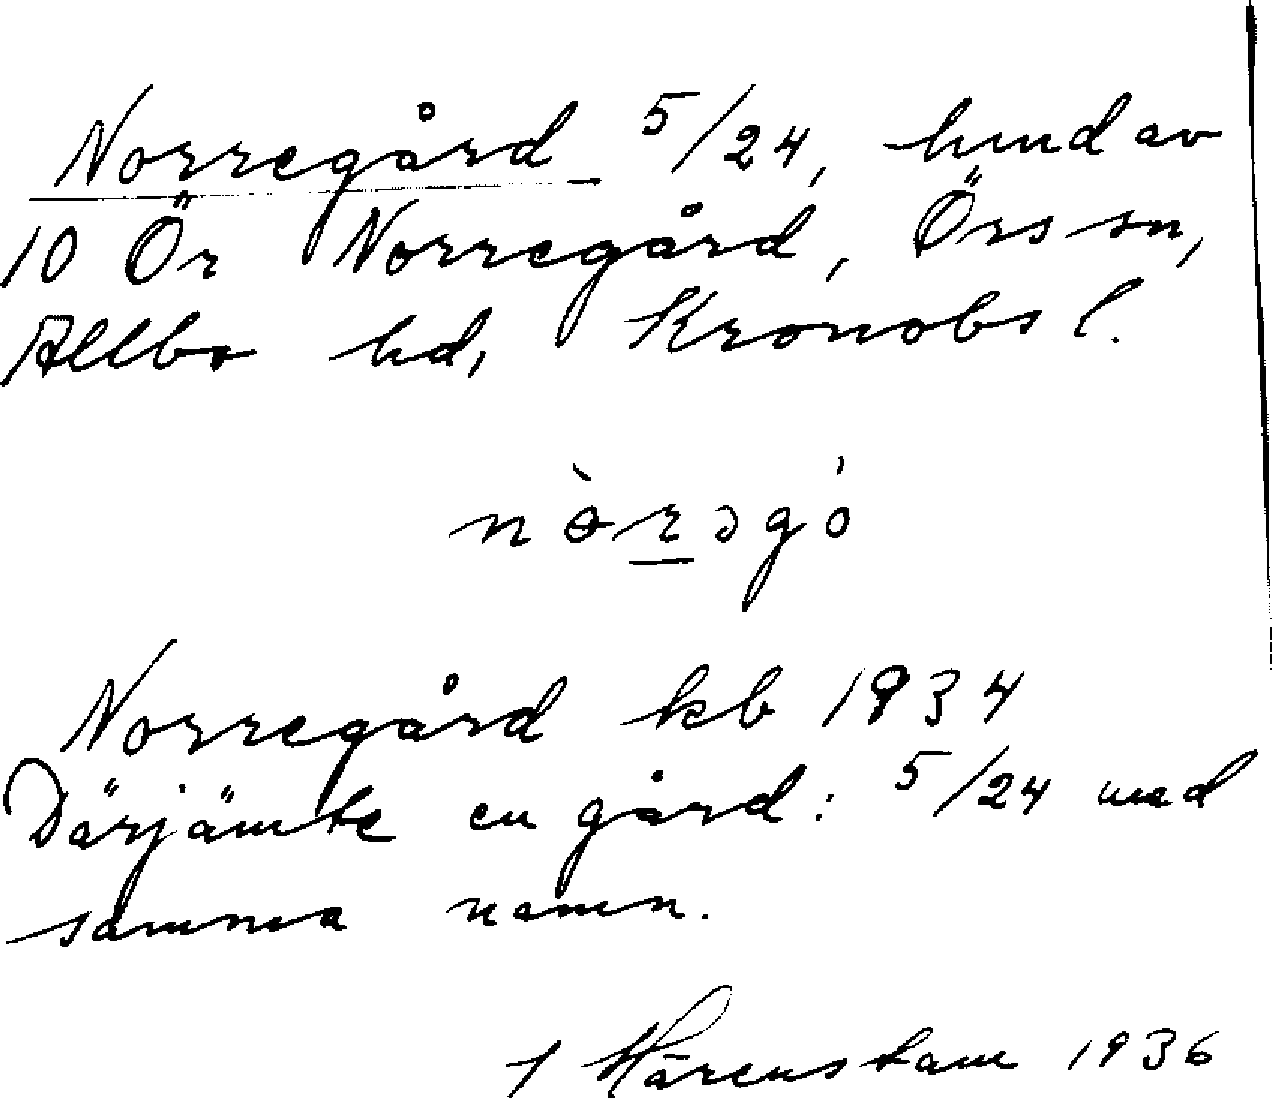 Norregård 5/24, hmd av
10 Ör Norregård, Örs sn,
Allbo hd, Kronobs l.
nò̵rəgó
Norregård kb 1934
Därjämte en gård: 5/24 med
samma namn.
Härenstam 1936